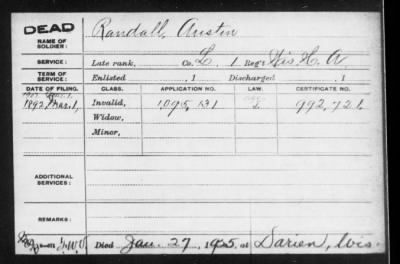 DEAD
NAME OF SOLDIER: Randall, Austin
SERVICE: Late rank, Co. L, 1 Reg't Wis H. A
TERM OF SERVICE: Enlisted , 1 Discharged , 1
DATE OF FILING. CLASS. APPLICATION NO. LAW. CERTIFICATE NO.
1892, Mar. 1, Invalid, 1095,131 992,721
Widow,
Minor,
ADDITIONAL SERVICES:
REMARKS:
Died Jan. 27, 1925, at Darien, Wis.